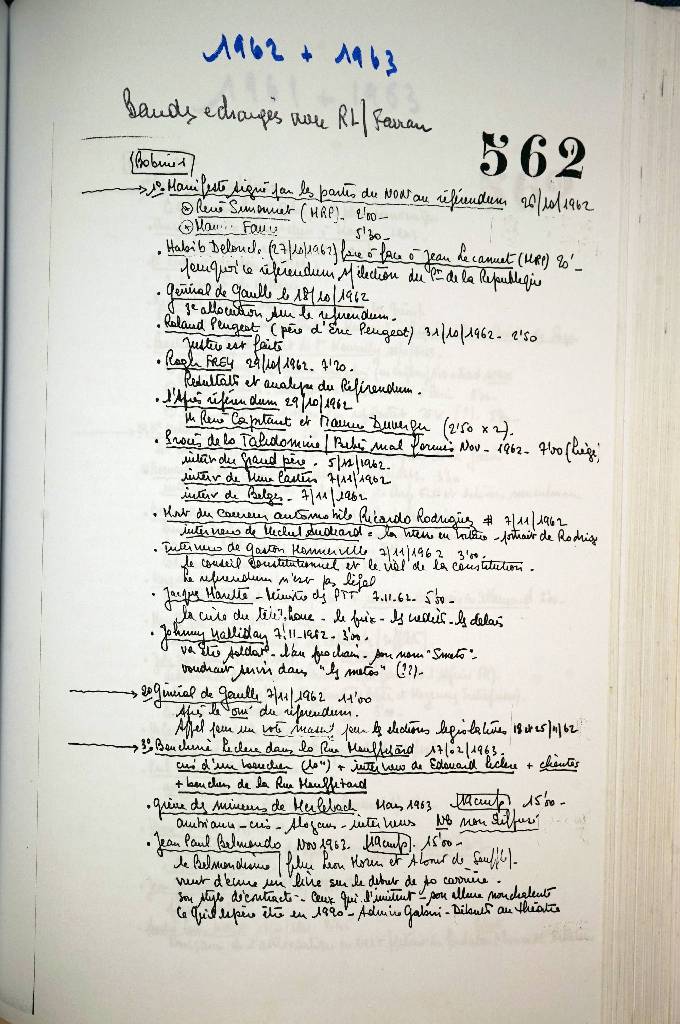 1962 + 1963
Bandes echangés avec RL/Farran
562
Bobine 1
1º Manifeste signé par les partis du NON au référendum 26/10/1962
René Simonnet (MRP). 2'00 -
Maurice Faure 5'30 -
. Habib Deloncle (27/10/1962) face à face à Jean Lecanuet (MRP) 20' -
pourquoi ce référendum s/ élection du Pt de la Republique
. Général de Gaulle le 18/10/1962
3e allocution sur le referendum.
. Roland Peugeot (père d'Eric Peugeot) 31/10/1962 - 2'50
Justice est faite
. Roger FREY 29/10/1962. 7'20.
Resultats et analyse du Référendum.
. l'Après référendum 29/10/1962
M René Capitant et Maurice Duverger (2'50 x 2).
. Procès de la Talidomine / Bebés mal formés Nov - 1962 - 7'00 (Liège)
interv du Grand père. 5/11/1962.
interv de Mme Casters 7/11/1962
interv de Belges - 7/11/1962
. Mort du coureur automobile Ricardo Rodriguez # 7/11/1962
interview de Michel = la messe en - portrait de Rodrig
. Interview de Gaston Monnerville 7/11/1962 3'00.
le conseil Constitutionnel et le viol de la constitution.
Le referendum n'est pas légal
. Jacques Marette - Ministre des PTT 7.11.62 - 5'30 -
la crise du téléphone - le prix - les credits - les delais
. Johnny Halliday 7.11.1962 - 3'00.
va être soldat - l'an prochain - son nom "Smets" -
voudrait servir dans "les metos" (??).
2º Général de Gaulle 7/11/1962 11'00
Après le "oui" du referendum.
Appel pour un vote massif pour les elections legislatives 18 et 25/11/62
3º Boucherie Leclerc dans la Rue Mouffetard 17/02/1963.
cris d'un boucher (10") + interview de Edouard Leclerc + clientes
+ bouchers de la Rue Mouffetard
. Grève des mineurs de Merlebach Mars 1963 19 cm/s 15'00 -
ambiance - cris - slogans - interviews NB non diffusé
. Jean Paul Belmondo Nov 1962 19 cm/s. 15'00 -
le Belmondisme / film Leon Morin et A bout de Souffle.
vient d'écrire un livre sur le debut de sa carrière.
son style décontracté - Ceux qui l'imitent - son allure nonchalente
Ce qu'il espère être en 1990 - Admire Gabin - Débuts au théatre